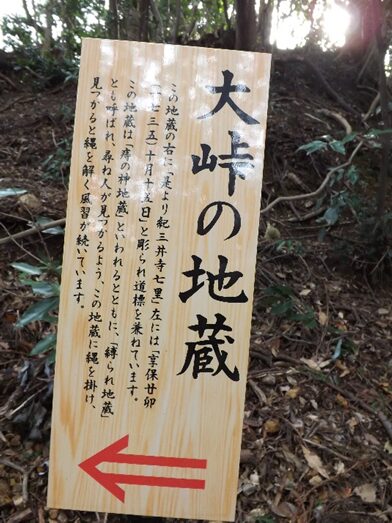 大峠の地蔵
この地蔵の右に「是より紀三井寺七里」左には「享保廿卯
(一七三五)十月十五日」と彫られ道標を兼ねています。
この地蔵は「痔の神地蔵」といわれるとともに、「縛られ地蔵」
とも呼ばれ、尋ね人が見つかるよう、この地蔵に縄を掛け、
見つかると縄を解く風習が続いています。